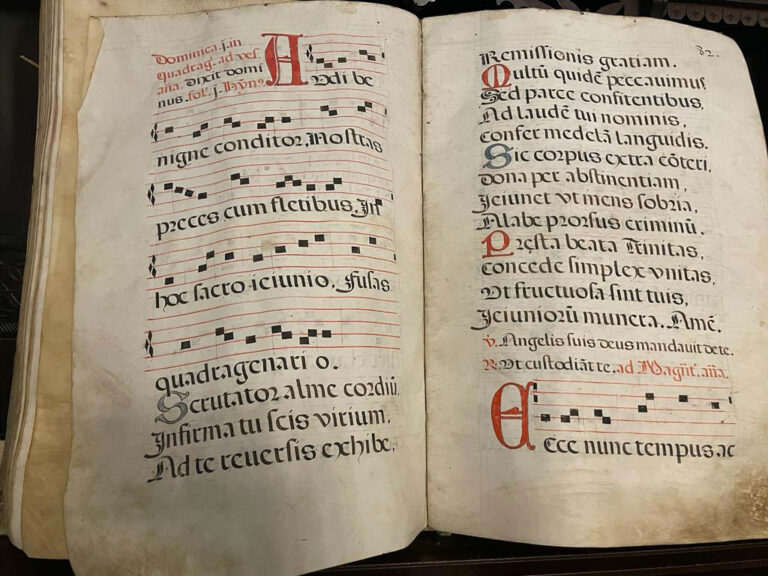 Dominica .j. in
quadrag. ad ves.
añã. Dixit domi
nus. fol. j. Hỹn9
AVdi be
nigne conditor, Nostras
preces cum fletibus, In
hoc sacro ieiunio. Fusas
quadragenari o.
Scrutator alme cordiũ,
Infirma tu scis virium,
Ad te reuersis exhibe,
82.
Remissionis gratiam.
Multũ quidẽ peccauimus,
Sed parce confitentibus,
Ad laudẽ tui nominis,
confer medelã languidis.
Sic corpus extra cõteri,
dona per abstinentiam,
Jeiunet vt mens sobria,
A labe prorsus criminũ.
Pręsta beata Trinitas,
concede simplex vnitas,
Vt fructuosa sint tuis,
Jeiuniorũ munera. Amẽ.
V. Angelis suis deus mandauit de te.
R. Vt custodiãt te. ad Magñt. añã.
ECce nunc tempus ac